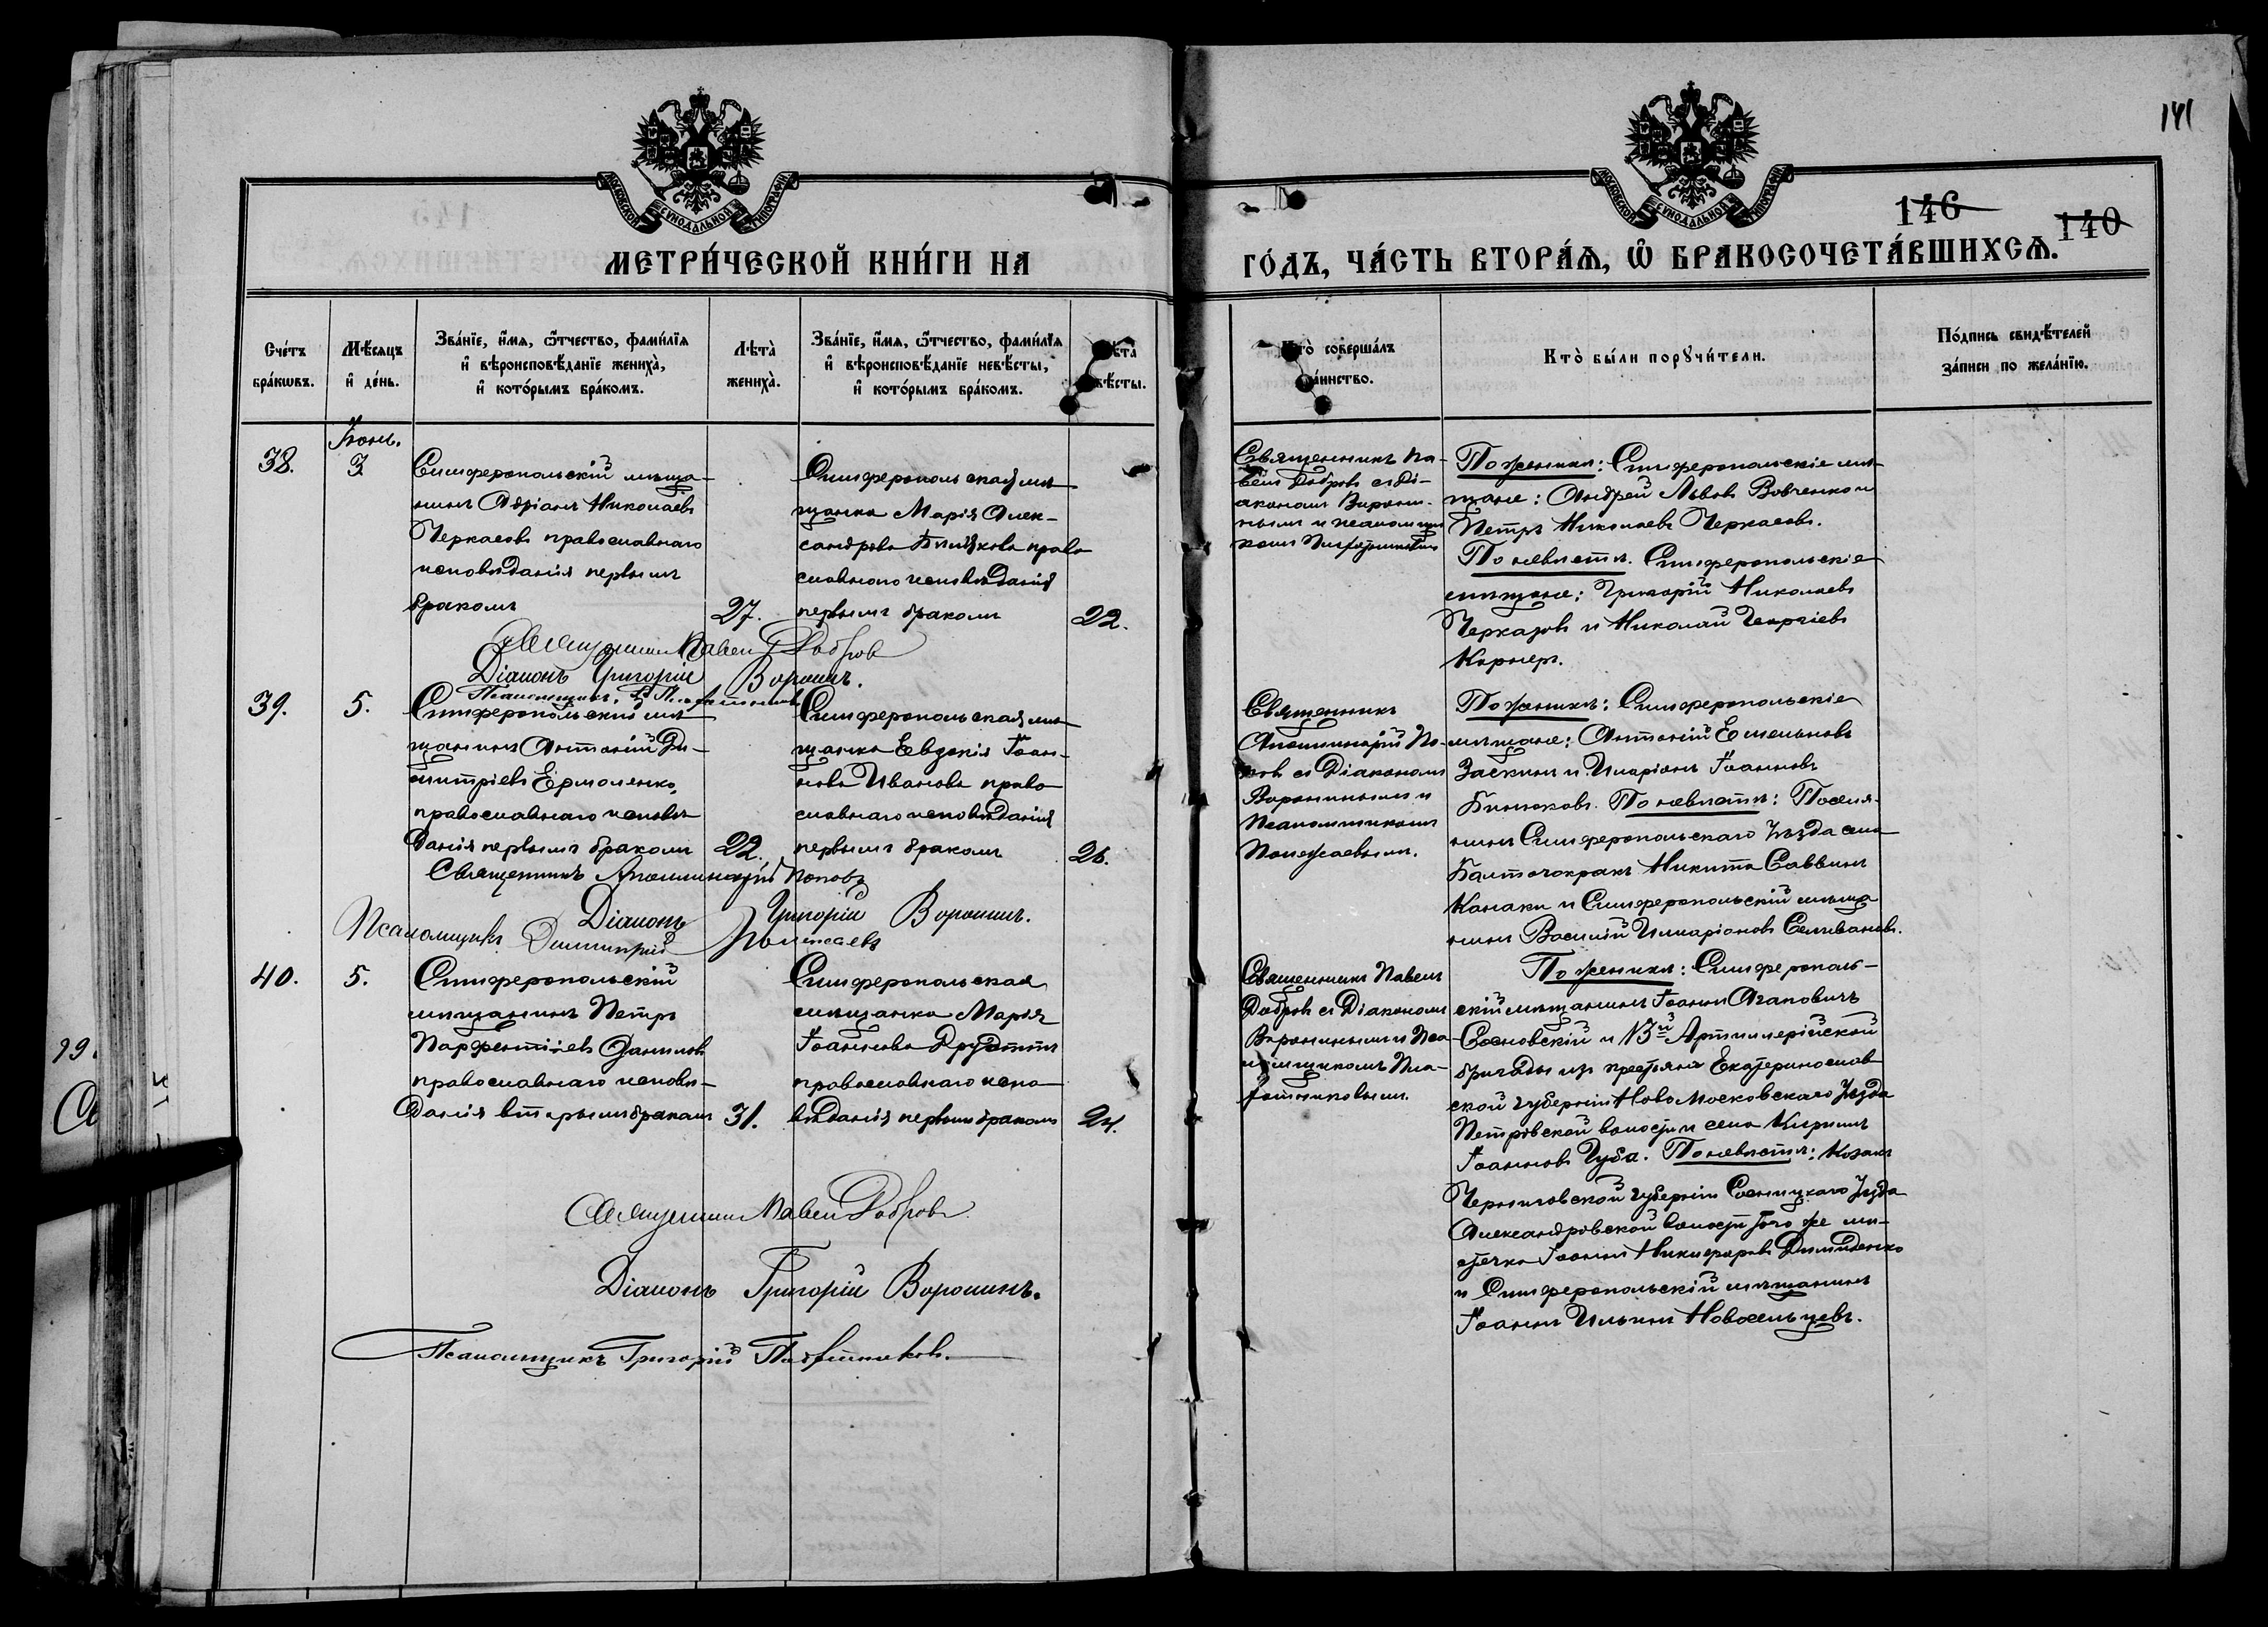 141
146
140
МОСКОВСКОЙ СѴНОДАЛЬНОЙ ТИПОГРАФІИ
МОСКОВСКОЙ СѴНОДАЛЬНОЙ ТИПОГРАФІИ
МЕТРИ́ЧЕСКОЙ КНИ́ГИ НА
ГО́ДЪ, ЧА́СТЬ ВТОРА́Ѧ, Ѽ БРАКОСОЧЕТА́ВШИХСѦ.
Сче́тъ
бра́кѡвъ.
Мѣ́сяцъ
и҆ де́нь.
Зва́нїе, и҆́мя, ѻ҆́тчество, фами́лїя
и҆ вѣроисповѣ́данїе жениха̀,
и҆ кото́рымъ бра́комъ.
Лѣта̀
жениха̀.
Зва́нїе, и҆́мя, ѻ҆́тчество, фами́лїя
и҆ вѣроисповѣ́данїе невѣ́сты,
и҆ кото́рымъ бра́комъ.
Лѣта̀
невѣ́сты.
Кто̀ соверша́лъ
таинство.
Кто̀ бы́ли порꙋчи́тели.
По́дпись свидѣ́телей
за́писи по жела́нїю.
38.
Іюнь.
3
Симферопольскій мѣща-
нинъ Адріанъ Николаевъ
Черкасовъ православнаго
исповѣданія первымъ
бракомъ
27.
Симферопольская мѣ-
щанка Марія Алек-
сандрова право
славнаго исповѣданія
первымъ бракомъ
22.
Священникъ Па-
велъ Добровъ съ Ді-
акономъ Ворони-
нымъ и псаломщи
комъ
По женихѣ: Симферопольскіе мѣ-
щане: Андрей Львовъ Вовченко и
Петръ Николаевъ Черкасовъ.
По невѣстѣ. Симферопольскіе
мѣщане: Григорій Николаевъ
Черказовъ и Николай Георгіевъ
Корнеръ.
Священникъ Павелъ Добровъ
Діаконъ Григорій Воронинъ.
Псаломщикъ
39.
5.
Симферопольскій мѣ-
щанинъ Антоній Ди-
митріевъ Ермоленко,
православнаго исповѣ-
данія первымъ бракомъ
22.
Симферопольская мѣ-
щанка Евдокія Іоан-
нова Иванова право
славнаго исповѣданія
первымъ бракомъ
Священникъ
Аполлинарій По-
повъ съ Діакономъ
Воронинымъ и
Псаломщикомъ
Полежаевымъ.
По женихѣ: Симферопольскіе
мѣщане: Антоній Емельяновъ
Заскинъ и Иларіонъ Іоанновъ
Бинюковъ. По невѣстѣ: Поселя-
нинъ Симферопольскаго Уѣзда села
Балточокракъ Никита Саввинъ
Канаки и Симферопольскій мѣща
нинъ Василій Иларіоновъ Селивановъ.
Священникъ Аполлинарій Поповъ
Діаконъ Григорій Воронинъ.
Псаломщикъ Димитрій Полежаевъ
40.
5.
Симферопольскій
мѣщанинъ Петръ
Парфентіевъ Даниловъ
православнаго исповѣ-
данія вторымъ бракомъ
31.
Симферопольская
мѣщанка Марія
Іоаннова
православнаго испо-
вѣданія первымъ бракомъ
24.
Священникъ Павелъ
Добровъ съ Діакономъ
Воронинымъ и Пса-
ломщикомъ Пла-
хотниковымъ.
По женихѣ: Симферополь-
скій мѣщанинъ Іоаннъ Агаповичъ
Сосновскій и 13й Артиллерійской
бригады изъ крестьянъ Екатеринослав
ской губерніи Новомосковскаго Уѣзда
Петровской волости и села Кириллъ
Іоанновъ Чуба. По невѣстѣ: Козакъ
Черниговской губерніи Сосницкаго Уѣзда
Александровской волости того же мѣ-
стечка Іоаннъ Никифоровъ Демиденко
и Симферопольскій мѣщанинъ
Іоаннъ Ильинъ Новосельцевъ.
Священникъ Павелъ Добровъ
Діаконъ Григорій Воронинъ.
Псаломщикъ Григорій Плахотниковъ.